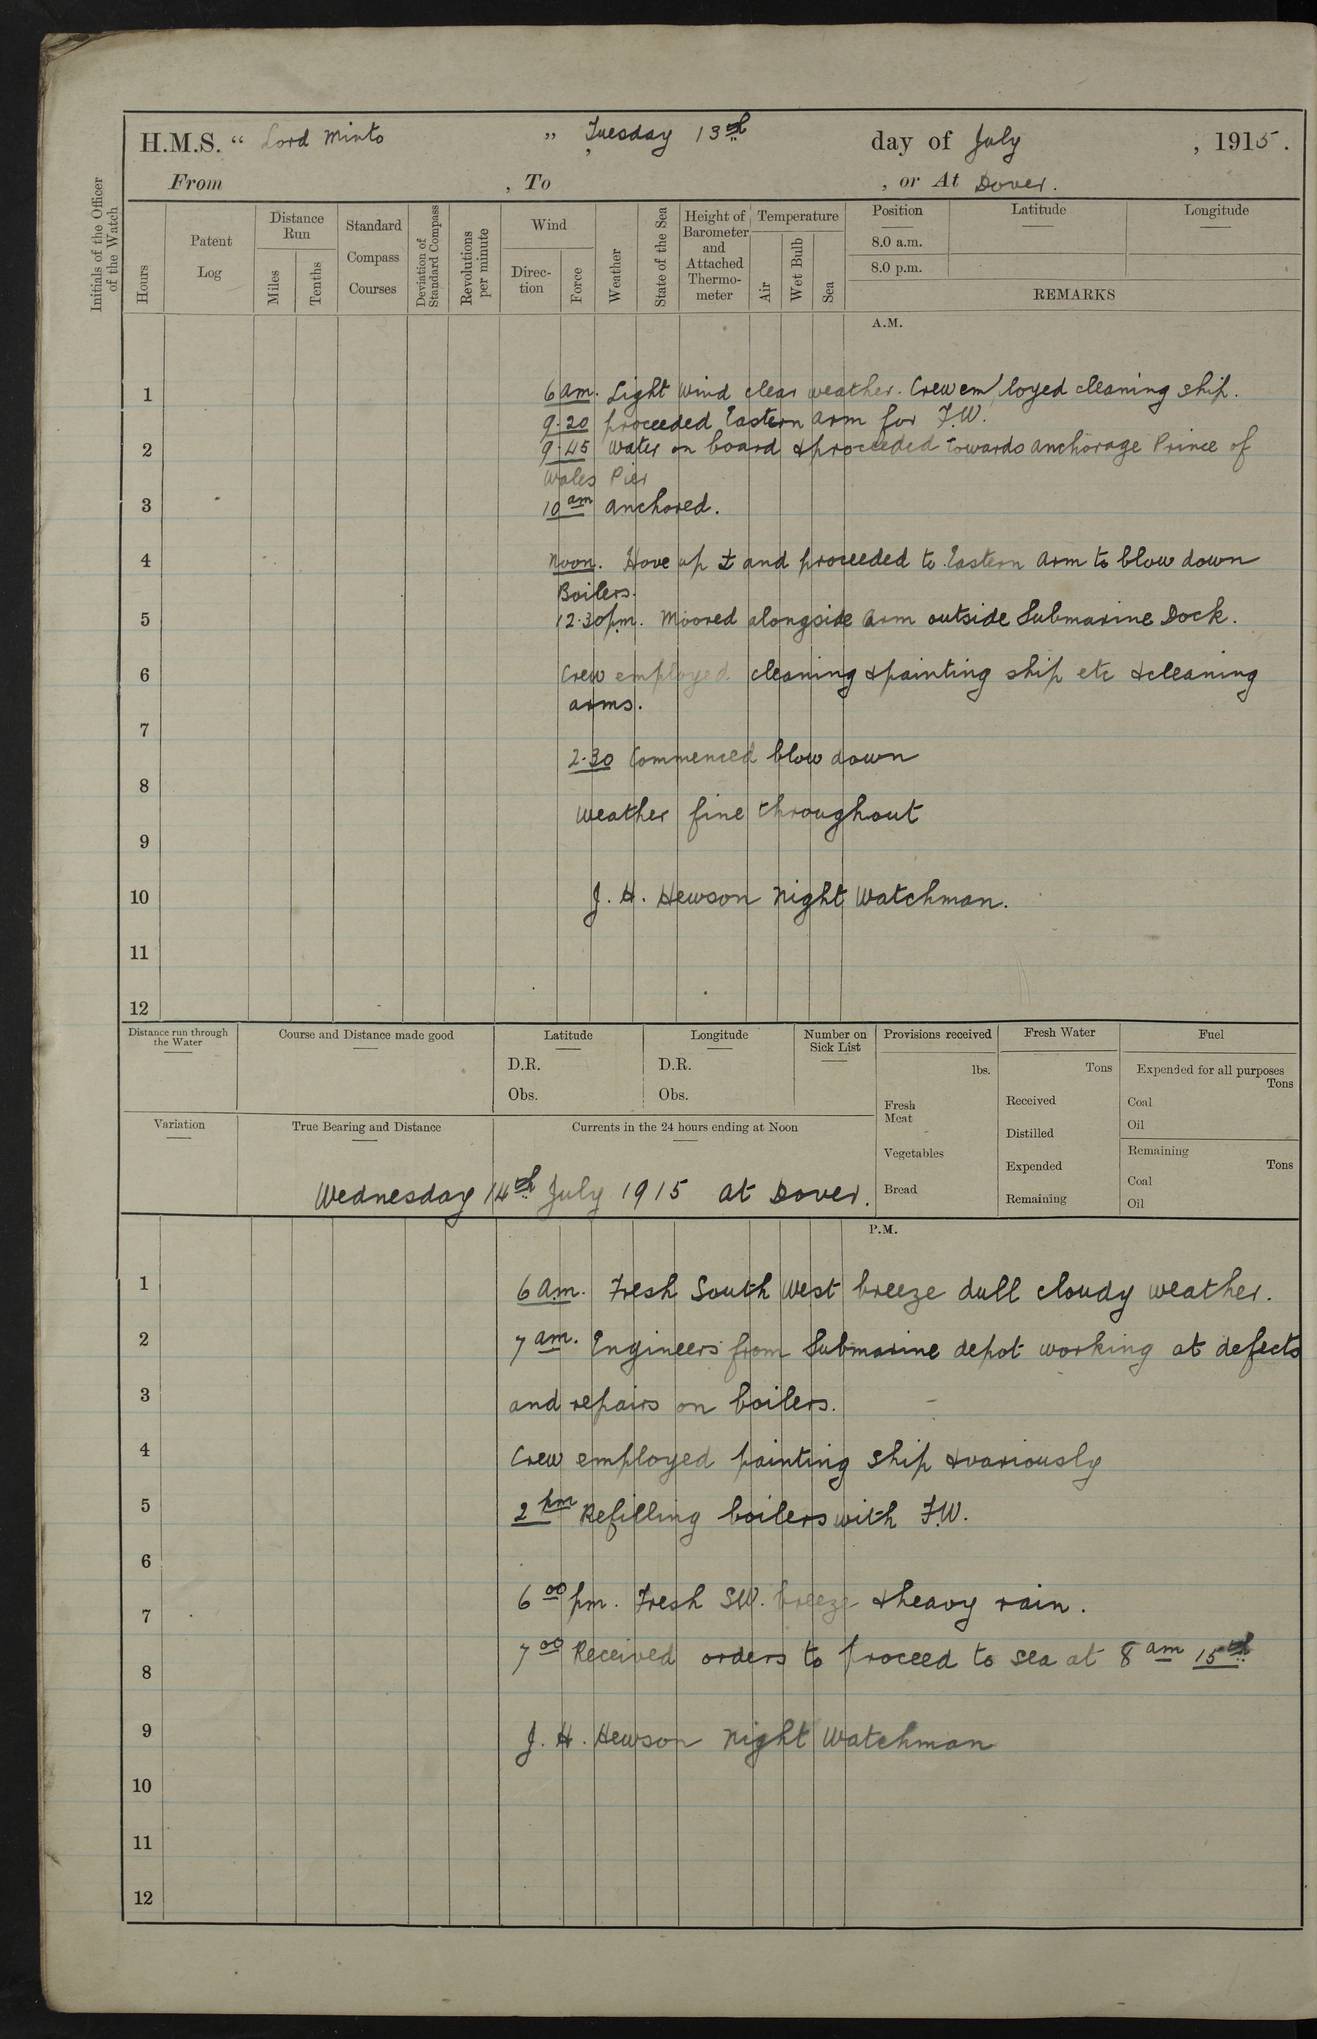 H.M.S. “ Lord Minto ” Tuesday 13th day of July , 1915.
From , To , or At Dover.
Initials of the Officer of the Watch
Hours
Patent Log
Distance Run
Miles
Tenths
Standard Compass Courses
Deviation of Standard Compass
Revolutions per minute
Wind
Direction
Force
Weather
State of the Sea
Height of Barometer and Attached Thermometer
Temperature
Air
Wet Bulb
Sea
Position
8.0 a.m.
8.0 p.m.
Latitude
Longitude
REMARKS
A.M.
1 6 am. Light wind clear weather. Crew employed cleaning ship.
9.20 proceeded Eastern Arm for F.W.
2 9.45 Water on board & proceeded towards anchorage Prince of
Wales Pier
3 10 am anchored.
4 Noon. Hove up ⚓ and proceeded to Eastern Arm to blow down
Boilers.
5 12.30pm. Moored alongside Arm outside Submarine Dock.
6 Crew employed cleaning & painting ship etc & cleaning
arms.
7
2.30 Commenced blow down
8
weather fine throughout
9
10 J. H. Hewson Night Watchman.
11
12
Distance run through the Water
Course and Distance made good
Latitude
D.R.
Obs.
Longitude
D.R.
Obs.
Number on Sick List
Provisions received
lbs.
Fresh Meat
Vegetables
Bread
Fresh Water
Tons
Received
Distilled
Expended
Remaining
Fuel
Expended for all purposes
Tons
Coal
Oil
Remaining
Tons
Coal
Oil
Variation
True Bearing and Distance
Currents in the 24 hours ending at Noon
Wednesday 14th July 1915 at Dover.
P.M.
1 6 am. Fresh South West breeze dull cloudy weather.
2 7 am. Engineers from Submarine depot working at defects
3 and repairs on boilers.
4 Crew employed painting ship & variously
5 2 pm Refilling boilers with F.W.
6
6 00 pm. Fresh SW. breeze & heavy rain.
7
7 00 Received orders to proceed to sea at 8 am 15th
8
9 J. H. Hewson Night Watchman
10
11
12